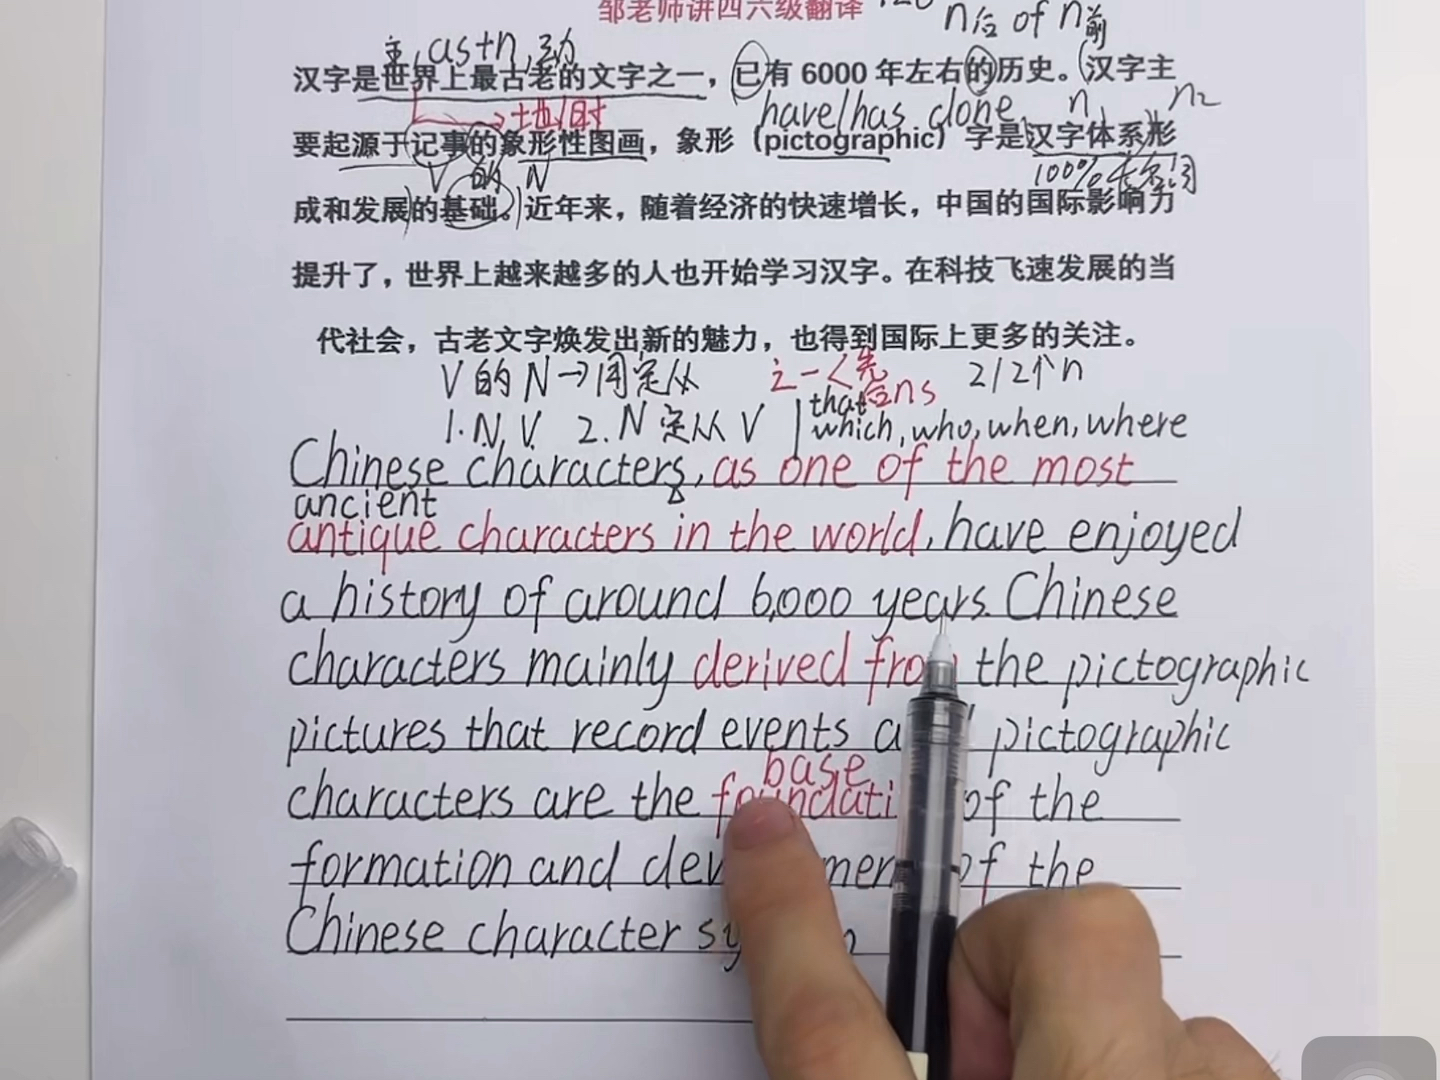 邹老师讲四六级翻译 120
n后 of n前
主, as+n, 动
汉字是世界上最古老的文字之一，已有 6000 年左右的历史。汉字主
地/时 have/has done n1 n2
要起源于记事的象形性图画，象形（pictographic）字是汉字体系形
V 的 N 100%
成和发展的基础。近年来，随着经济的快速增长，中国的国际影响力
提升了，世界上越来越多的人也开始学习汉字。在科技飞速发展的当
代社会，古老文字焕发出新的魅力，也得到国际上更多的关注。
V 的 N → 同定从 之一 先 2/2个n
后ns
1. N, V. 2. N 定从 V that
which, who, when, where
Chinese characters, as one of the most
ancient
antique characters in the world, have enjoyed
a history of around 6,000 years. Chinese
characters mainly derived the pictographic
pictures that record events pictographic
base
characters are the of the
formation and of the
Chinese character